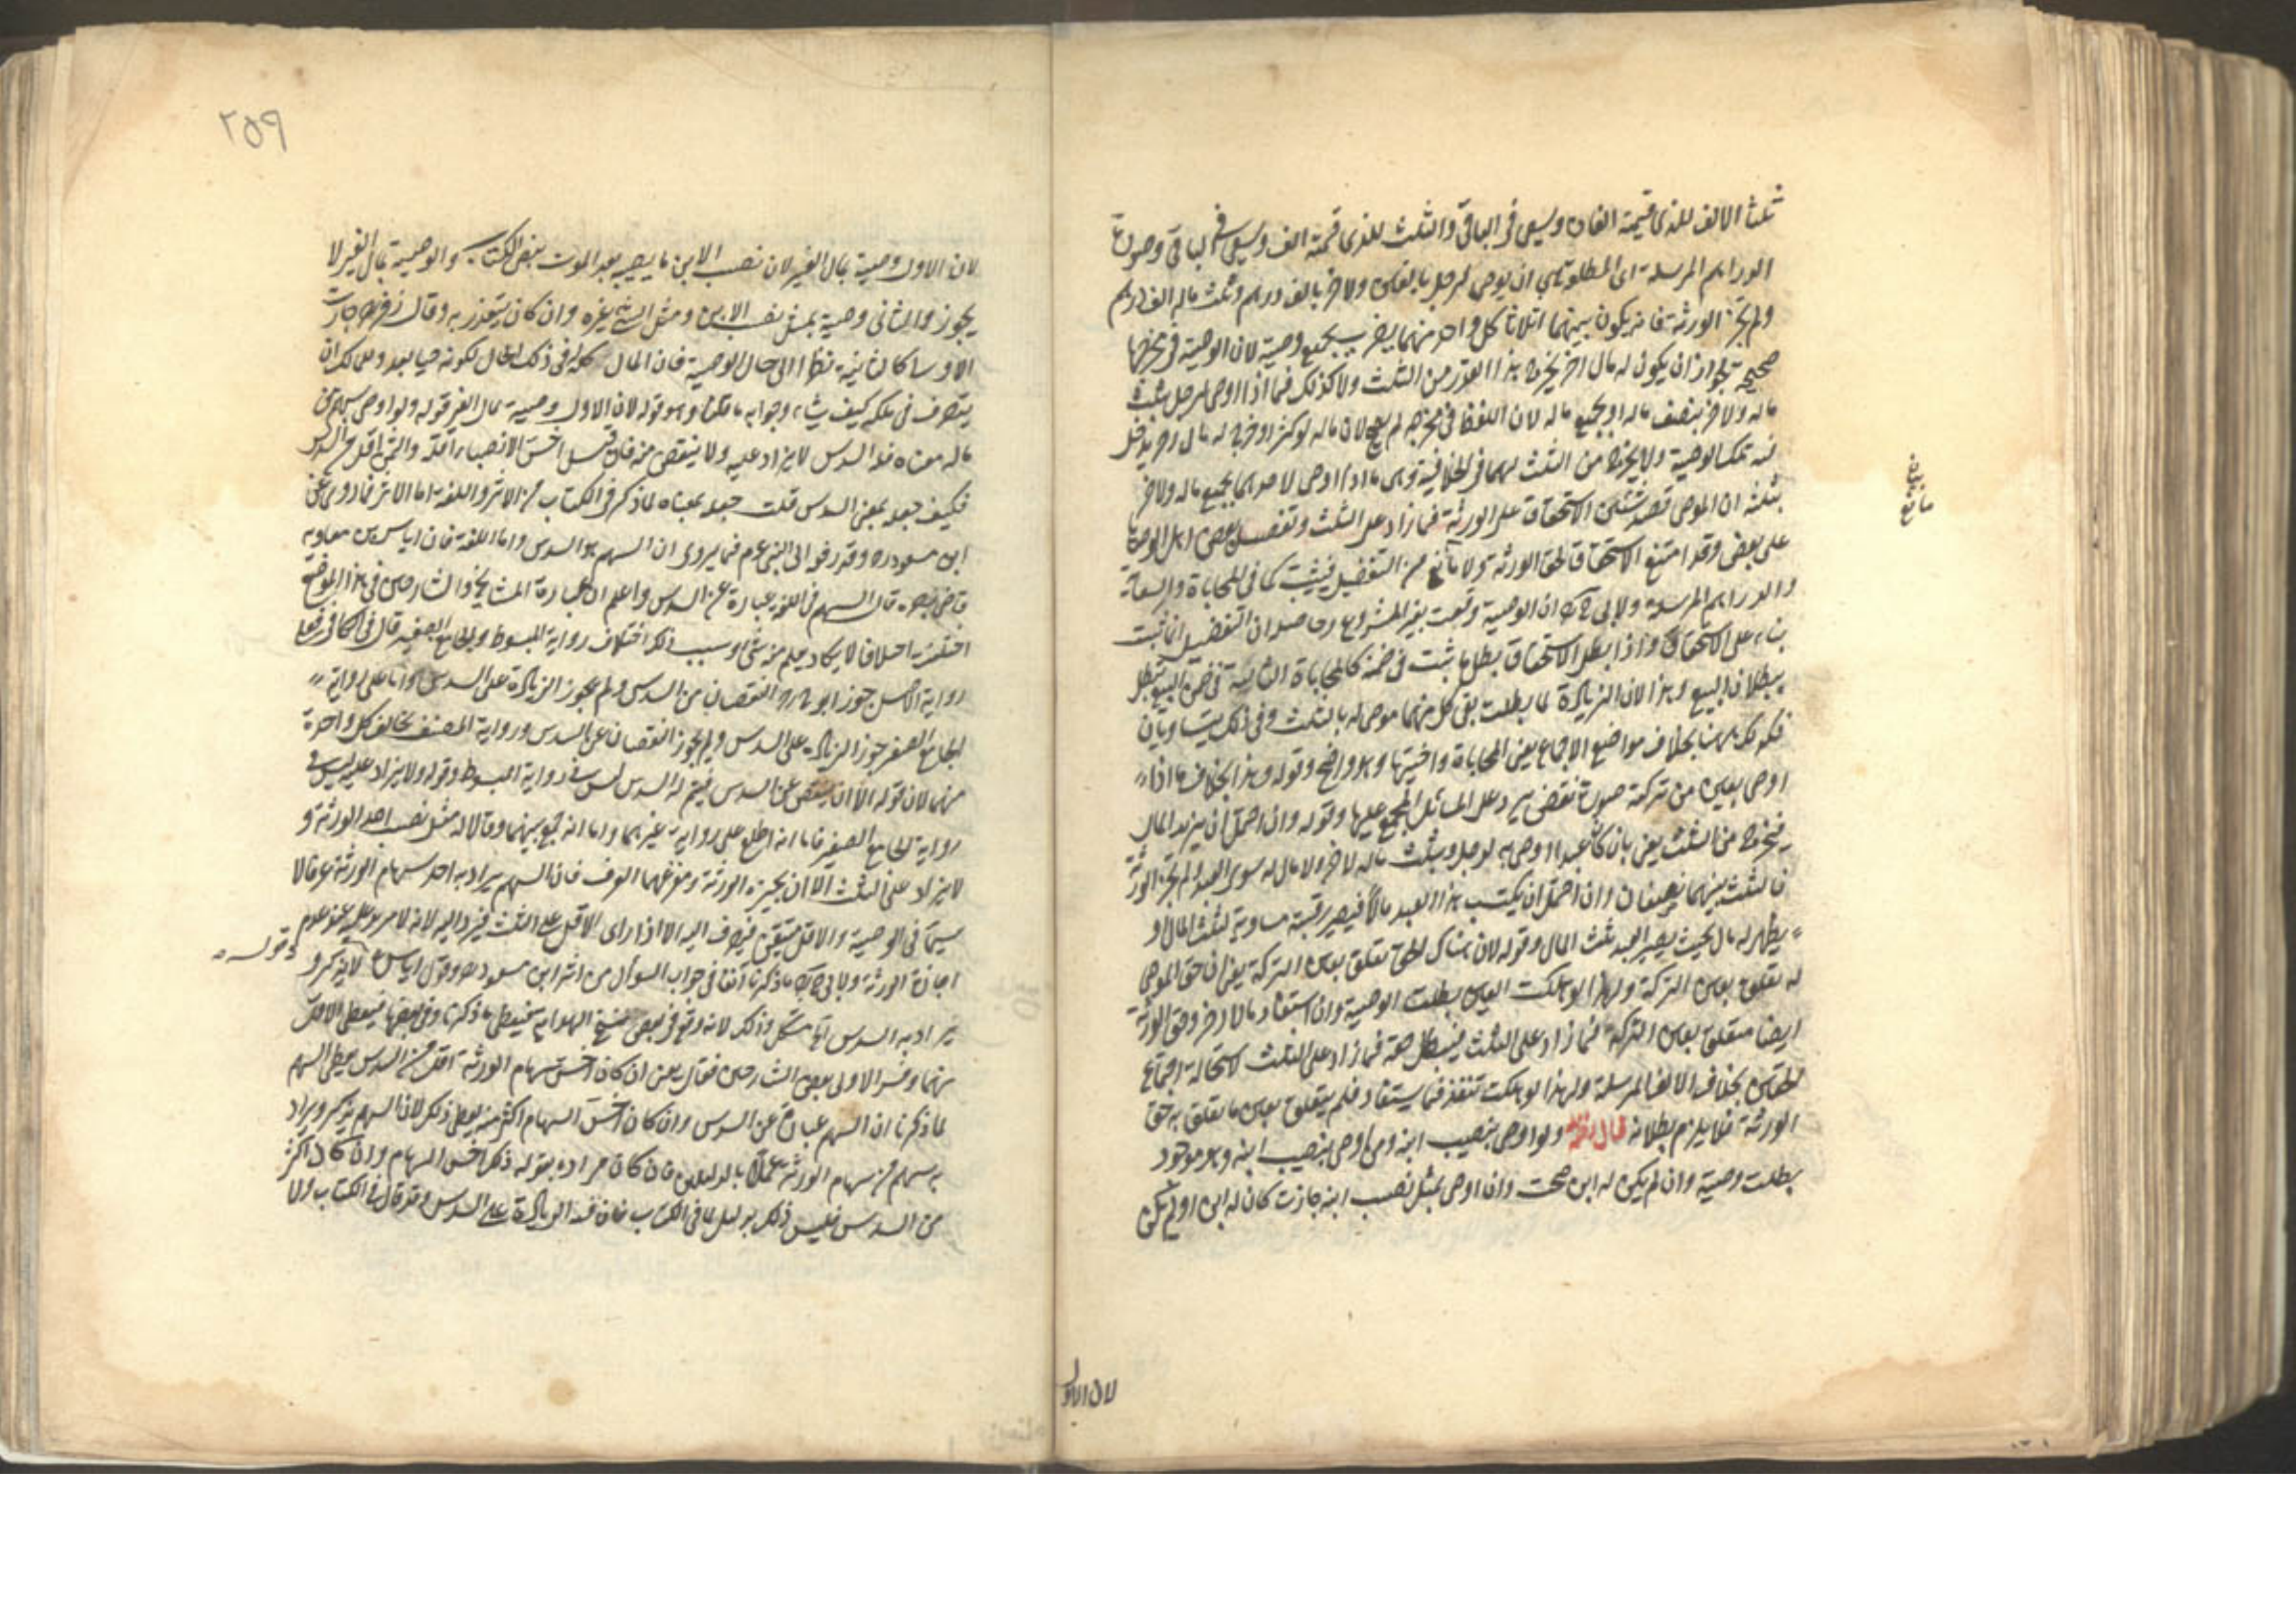 ثلثا الالف للذى قيمته الفان ويسعى فى الباقى والثلث للذى قيمته الف ويسعى فى الباقى وصورة
الدراهم المرسلة اى المطلقة هى ان يوصى لرجل بالفين ولاخر بالف درهم وثلث ماله الف درهم
ولم تجز الورثة فانه يكون بينهما اثلاثا كل واحد منهما يضرب بجميع وصيته لان الوصية فى مخرجها
صحيحة لجواز ان يكون له مال اخر يخرج هذا القدر من الثلث ولا كذلك فيما اذا اوصى لرجل بثلث
ماله ولاخر بنصف ماله او بجميع ماله لان اللفظ فى مخرجه لم يصح لان ماله لو كثر او خرج له مال اخر يدخل
فيه تلك الوصية ولا يخرج من الثلث لهما فى الخلافية وهى ما اذا اوصى لاحدهما بجميع ماله ولاخر
بثلثه ان الموصى قصد شيئين الاستحقاق على الورثة فيما زاد على الثلث وتفضيل بعض اهل الوصايا
على بعض وقد امتنع الاستحقاق لحق الورثة ولا مانع من التفضيل فيثبت كما فى المحاباة والسعاية
والدراهم المرسلة ولابى ح ان الوصية وقعت بغير المشروع وحاصله ان التفضيل انما ثبت
بناء على الاستحقاق واذا بطل الاستحقاق بطل ما ثبت فى ضمنه كالمحاباة الثابتة فى ضمن البيع تبطل
ببطلان البيع وهذا لان الزيادة لما بطلت بقى كل منهما موصى له بالثلث وفى ذلك يتساويان
فكذلك هنا بخلاف مواضع الاجماع يعنى المحاباة واختيها وهو واضح وقوله وهذا بخلاف ما اذا
اوصى بعين من تركته صورة نقض يرد على المسائل المجمع عليها وقوله وان احتمل ان يزيد المال
فيخرج من الثلث يعنى بان كان عبدا اوصى به لرجل وبثلث ماله لاخر ولا مال له سوى العبد ولم تجز الورثة
فالثلث بينهما نصفان وان احتمل ان يكتسب هذا العبد مالا فيصير رقبته مساوية لثلث المال و
يظهر له مال بحيث يصير العبد ثلث المال وقوله لان هناك الحق تعلق بعين التركة يعنى ان حق الموصى
له تعلق بعين التركة ولهذا لو هلكت العين بطلت الوصية وان استفاد مالا اخر وحق الورثة
ايضا متعلق بعين التركة فيما زاد على الثلث فيبطل حقه فيما زاد على الثلث لاستحالة اجتماع
الحقين بخلاف الالف المرسلة ولهذا لو هلكت تنفذ فيما يستفاد فلم يتعلق بعين ما تعلق به حق
الورثة فلا يلزم بطلانه قال ولو اوصى بنصيب ابنه ومن اوصى بنصيب ابنه وهو موجود
بطلت وصيته وان لم يكن له ابن صحت وان اوصى بمثل نصيب ابنه جازت كان له ابن او لم يكن
مانع
لان الاول
٢٥٩
لان الاول وصية بمال الغير لان نصيب الابن ما يصيبه بعد الموت بنص الكتاب والوصية بمال الغير لا
يجوز والثانى وصية بمثل نصيب الابن ومثل الشئ غيره وان كان يتقدر به وقال زفر جازت
الاولى كالثانية نظرا الى حال الوصية فان المال كله فى ذلك الحال لكونه حيا بعد وللمالك ان
يتصرف فى ملكه كيف شاء وجوابه ما قلنا وهو قوله لان الاول وصية بمال الغير قوله ولو اوصى بسهم من
ماله معناه فله السدس لا يزاد عليه ولا ينقص منه فان قيل اخس الانصباء اقله والثمن اقل من السدس
فكيف جعله بمعنى السدس قلت جعله بمعناه لما ذكر فى الكتاب من الاثر واللغة اما الاثر فما روى عن
ابن مسعود وقد رفعه الى النبى عم فيما يروى ان السهم هو السدس واما اللغة فان اياس بن معاوية
قاضى البصرة قال السهم فى اللغة عبارة عن السدس واعلم ان عبارة المشايخ والشارحين فى هذا الموضع
اختلفت اختلافا لا يكاد يعلم منه شئ وسبب ذلك اختلاف رواية المبسوط والجامع الصغير قال فى الكافى فعلى
رواية الاصل جوز ابو ح النقصان من السدس ولم يجوز الزيادة على السدس واما على رواية
الجامع الصغير جوز الزيادة على السدس ولم يجوز النقصان عن السدس ورواية المصنف تخالف كل واحدة
منهما لان قوله الا ان ينقص عن السدس فيتم له السدس ليس فى رواية المبسوط وقوله ولا يزاد عليه ليس فى
رواية الجامع الصغير فاما انه اطلع على رواية غيرهما واما انه جمع بينهما وقالا له مثل نصيب احد الورثة و
لا يزاد على الثلث الا ان يجيزه الورثة ومفزعهما العرف فان السهم يراد به احد سهام الورثة عرفا لا
سيما فى الوصية والاقل متيقن فيصرف اليه الا اذا زاد الاقل على الثلث فيرد اليه لانه لا مزيد عليه عند عدم
اجازة الورثة ولابى ح ما ذكرنا انفا فى جواب السؤال من اثر ابن مسعود وقول اياس لانه يذكر و
وقوله
يراد به السدس آه مشكل وذلك لانه وقع فى بعض نسخ الهداية فيعطى ما ذكرنا وفى بعضها فيعطى الاقل
منهما وفسر الاولى بعض الشارحين فقال يعنى ان كان اخس سهام الورثة اقل من السدس يعطى السهم
لما ذكرنا ان السهم عبارة عن السدس وان كان اخس السهام اكثر منه يعطى ذلك لان السهم يذكر ويراد
به سهم من سهام الورثة عملا بالدليلين فان كان مراده بقوله ذلك اخس السهام وان كان اكثر
من السدس فليس ذلك بدليل لما فى الكتاب فان فيه الزيادة على السدس وقد قال فى الكتاب ولا